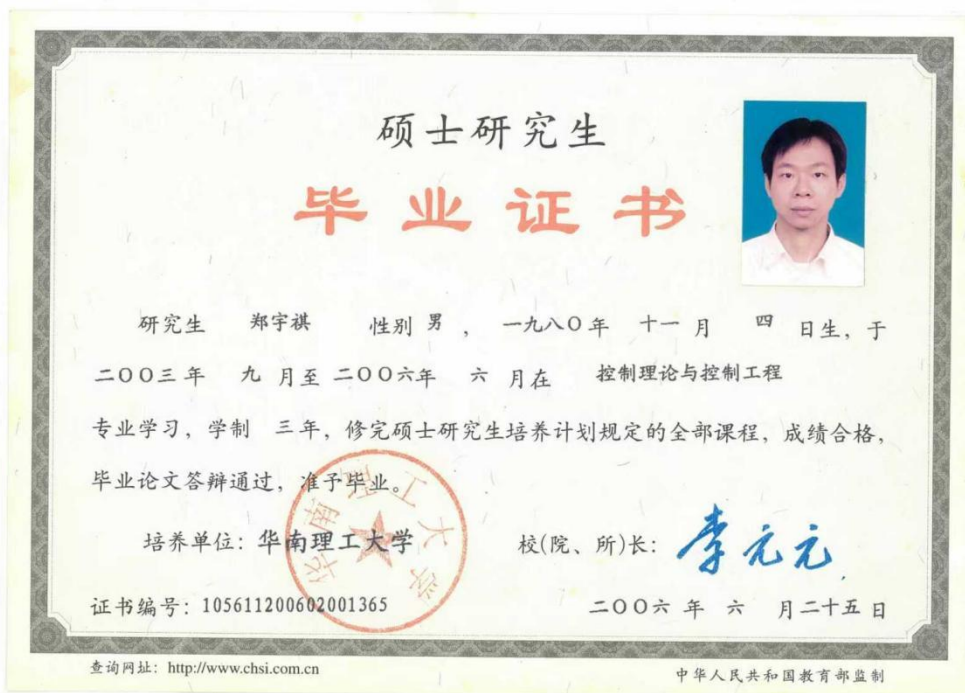 硕士研究生
毕业证书
研究生 郑宇祺 性别 男 ， 一九八〇年 十一 月 四 日生，于
二〇〇三年 九 月至 二〇〇六年 六 月在 控制理论与控制工程
专业学习，学制 三年，修完硕士研究生培养计划规定的全部课程，成绩合格，
毕业论文答辩通过，准予毕业。
华南理工大学
培养单位：华南理工大学 校(院、所)长：李元元
证书编号：105611200602001365 二〇〇六 年 六 月二十五日
查询网址：http://www.chsi.com.cn 中华人民共和国教育部监制